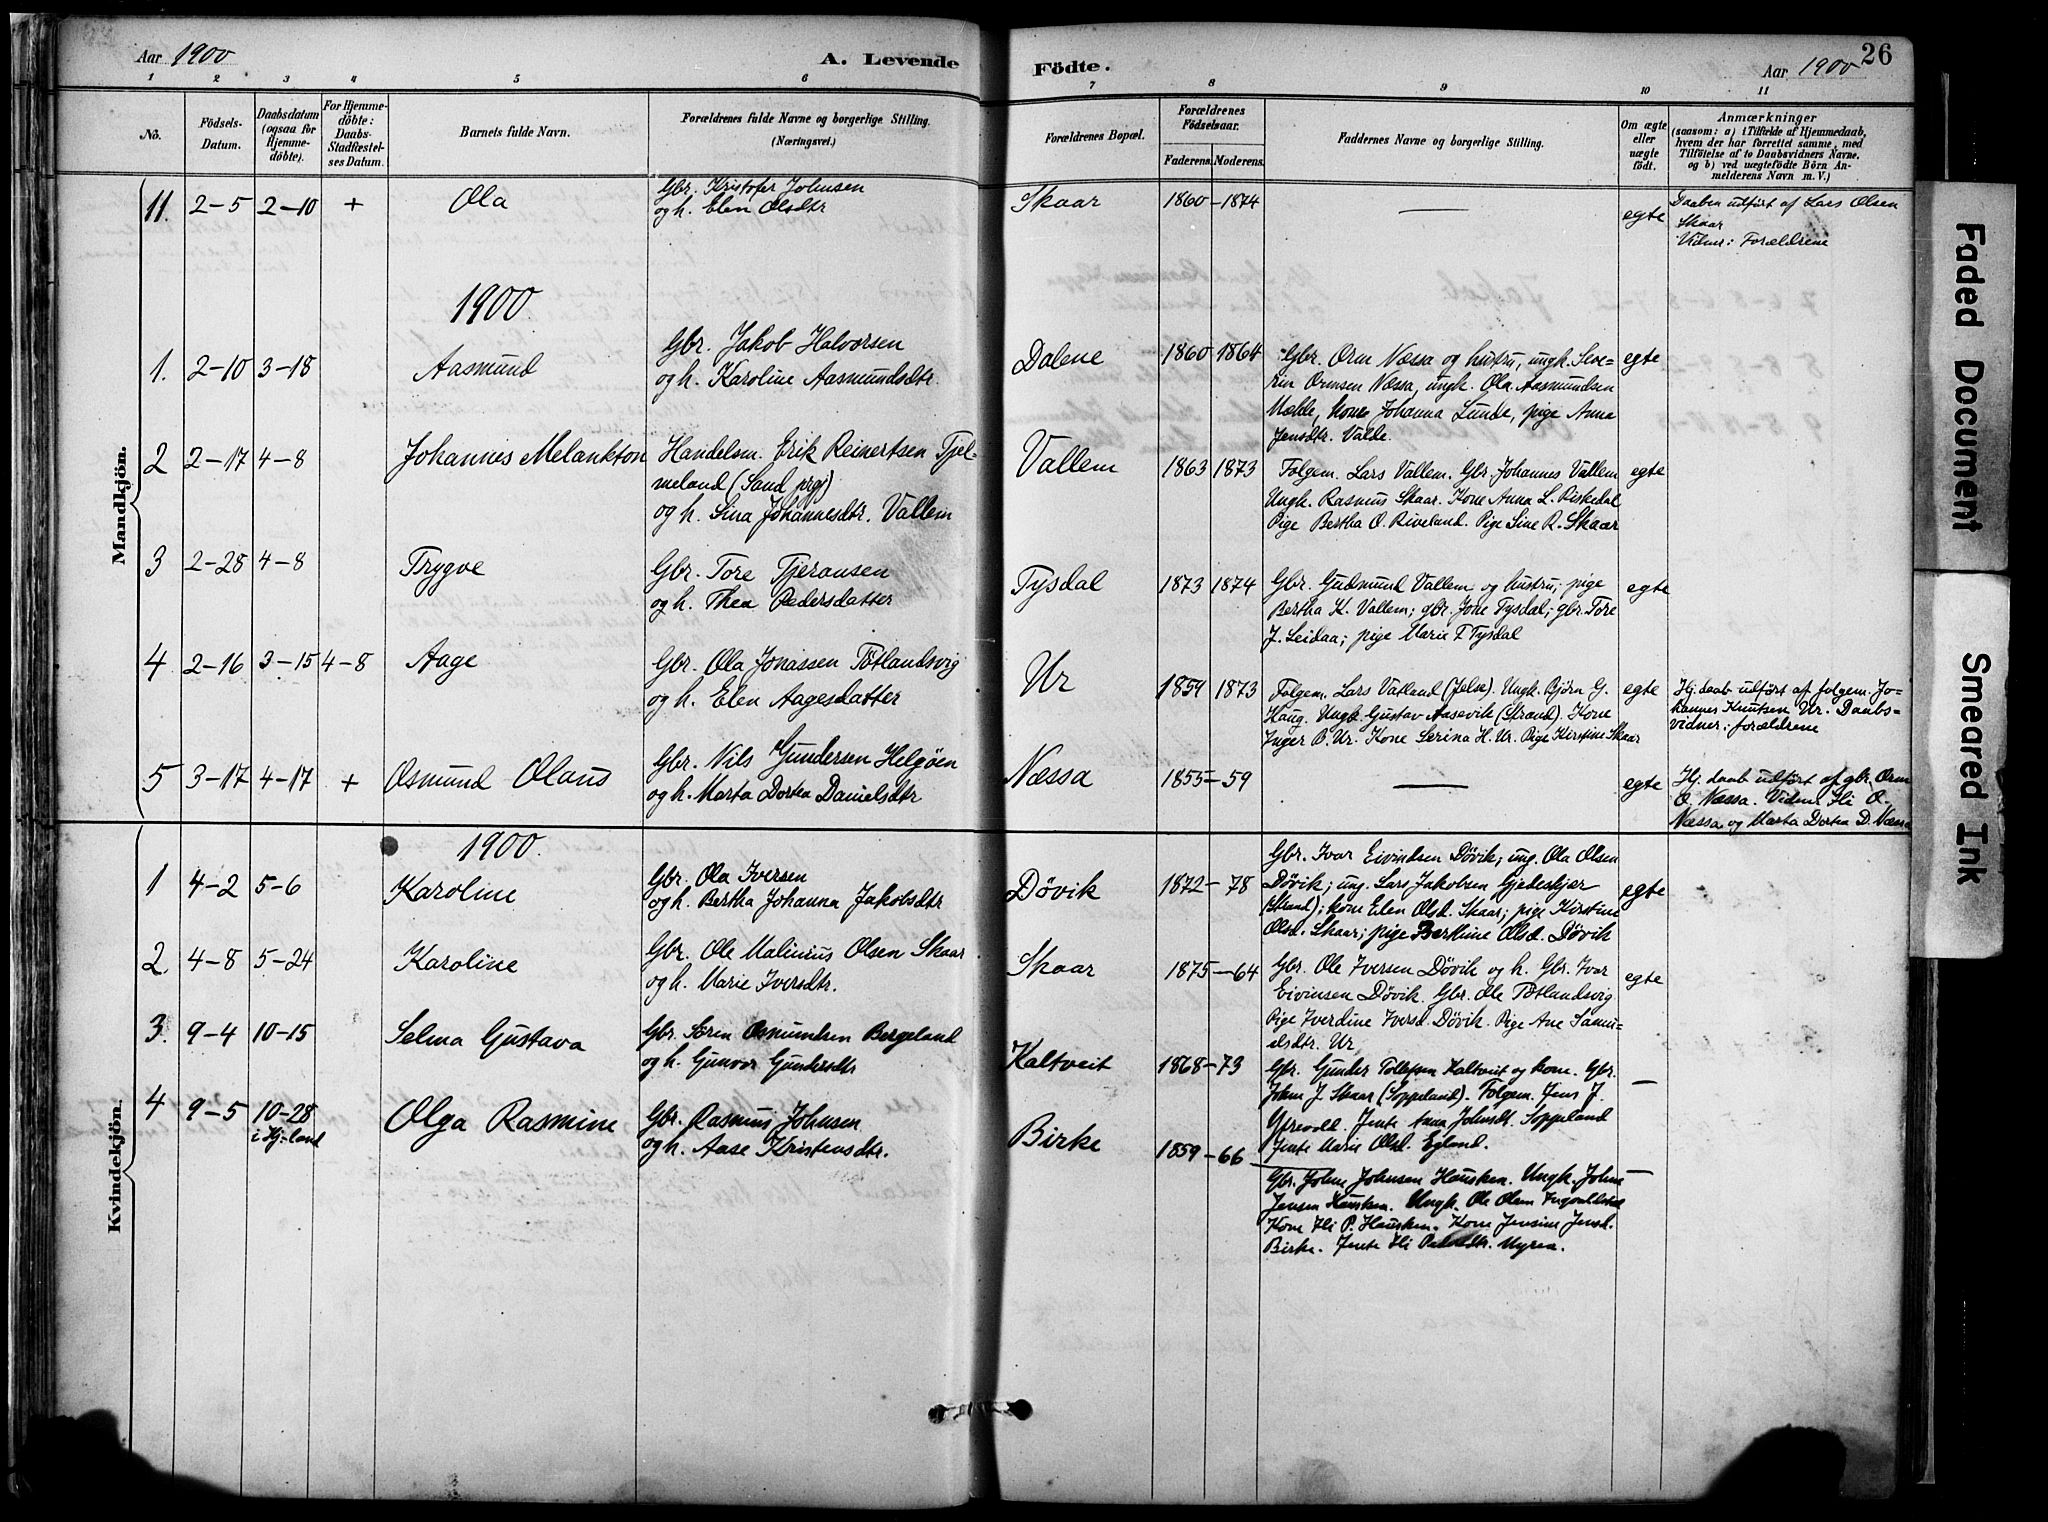 Aar 1900
A. Levende
Födte.
Aar 1900
26
1 2 3 4 5 6 7 8 9 10 11
No.
Födsels-
Datum.
Daabsdatum
(ogsaa for
Hjemme-
döbte).
For Hjemme-
döbte:
Daabs-
Stadfæstel-
ses Datum.
Barnets fulde Navn.
Forældrenes fulde Navne og borgerlige Stilling.
(Næringsvei.)
Forældrenes Bopæl.
Forældrenes
Födselsaar.
Faderens. Moderens.
Faddernes Navne og borgerlige Stilling.
Om ægte
eller
uægte
födt.
Anmærkninger
(saasom: a) i Tilfælde af Hjemmedaab,
hvem der har forrettet samme, med
Tilföielse af to Daabsvidners Navne.
og b) ved uægtefödte Börn An-
melderens Navn m. V.)
Mandkjön.
11. 2-5 2-10 + Ola
Gbr. Kristofer Johnsen
og h. Elen Olsdtr
Skaar 1860-1874 — egte
Daaben udført af Lars Olsen
Skaar
Vidner: Forældrene
1900.
1. 2-10 3-18 Aasmund
Gbr. Jakob Halvorsen
og h. Karoline Aasmundsdtr.
Dalene 1860 1864
Gbr. Orm Næssa og hustru, ungk. Seve-
rin Ormsen Næssa, ungk. Ola Aasmundsen
Mæhle, kone Johanna Lunde, pige Anna
Jensdtr. Valde.
egte
2 2-17 4-8 Johannes Melankton
Handelsm. Erik Reinertsen Tjel-
meland (Sand prgj)
og h. Sina Johannesdtr. Vallem
Vallem 1863 1873
Folgem. Lars Vallem. Gbr. Johannes Vallem
Ungk. Rasmus Skaar. Kone Anna L. Riskedal
Pige Bertha O. Riveland. Pige Sine R. Skaar
egte
3 2-28 4-8 Trygve
Gbr. Tore Tjeransen
og h. Thea Pedersdatter
Tysdal 1873 1874
Gbr. Gudmund Vallem og hustru; pige
Bertha K. Vallem; gbr. Jone Tysdal; gbr. Tore
J. Leidaa; pige Marie T Tysdal
egte
4 2-16 3-15 4-8 Aage
Gbr. Ola Jonassen Tøtlandsvig
og h. Elen Aagesdatter
Ur 1859 1873
Folgem. Lars Vatland (Jelse). Ungk. Bjørn G.
Haug. Ungk. Gustav Aasevik (Strand). Kone
Inger B. Ur. Kone Serina H. Ur. Pige Kirstine Skaar
egte
Hj. daab udført af folgem. Jo-
hannes Knutsen Ur. Daabs-
vidner: forældrene
5 3-17 4-17 + Osmund Olaus
Gbr. Nils Gundersen Helgøen
og h. Marta Dortea Danielsdtr
Næssa 1855-59 — egte
Hj. daab udført af gbr. Orm
O. Næssa. Vidner Hi O.
Næssa og Marta Dortea D. Næssa
Kvindekjön.
1900.
1 4-2 5-6 Karoline
Gbr. Ola Iversen
og h. Bertha Johanna Jakobsdtr
Døvik 1872-78
Gbr. Ivar Eivindsen Døvik; ung. Ola Olsen
Døvik; ung. Lars Jakobsen Gjedeskjer
(Strand); kone Elen Olsd. Skaar; pige Kirstine
Olsd. Skaar; pige Berthine Olsd. Døvik
egte
2 4-8 5-24 Karoline
Gbr. Ole Malinius Olsen Skaar
og h. Marie Iversdtr.
Skaar 1875-64
Gbr. Ole Iversen Døvik og h. Gbr. Ivar
Eivinsen Døvik. Gbr. Ole Tøtlandsvig
Pige Iverdine Iversd. Døvik. Pige Ane Samu-
elsdtr. Ur
egte
3. 9-4 10-15 Selma Gustava
Gbr. Søren Osmundsen Bergeland
og h. Gunvor Gundersdtr
Kaltveit 1868-73
Gbr. Gunder Tollefsen Kaltveit og kone. Gbr.
John J. Skaar (Soppeland). Folgem. Jens J.
Ytrevold. Jente Anna Johnsdt. Soppeland
Jente Marie Olsd. Eyland.
—
4 9-5 10-28
i Hj-land
Olga Rasmine
Gbr. Rasmus Johnsen
og h. Aase Kristensdtr.
Birke 1859-66
Gbr. John Johnsen Hausken. Ungk. John
Jensen Hausken. Ungk. Ole Olsen
Kone Hi P. Hausken. Kone Jensine Jensd.
Birke. Jente Hi
—
Faded Document
Smeared Ink